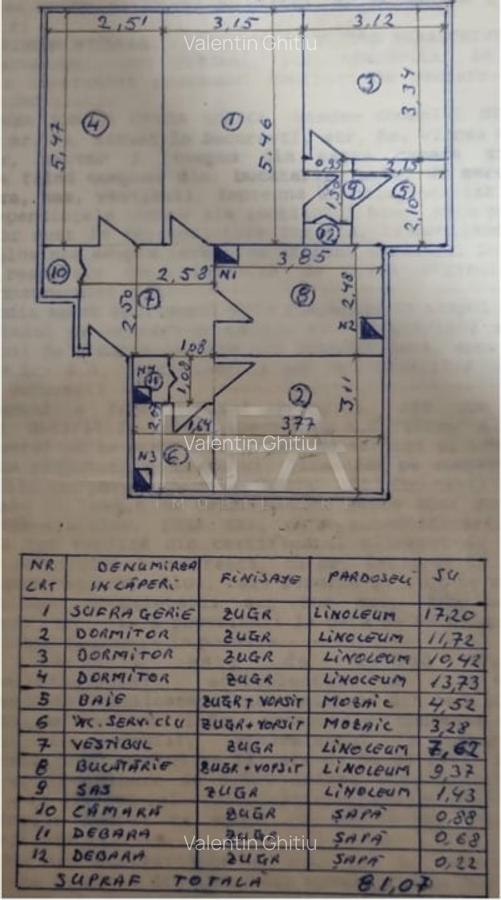 2,51 3,15 3,12
Valentin Ghitiu
3
3,34
4 1
5,47 5,46
0,95 2,15
1,50 9 5
2,10
12
3,85
10 2,58 N1
7 8 2,48
2,50 N2
1,08
N4 11 1,08 2 3,11
1,64 3,77
Valentin Ghitiu
N3 6
IMOBILIARE
NR CRT DENUMIREA INCĂPERI FINISAJE PARDOSELI SU
1 SUFRAGERIE ZUGR LINOLEUM 17,20
2 DORMITOR ZUGR LINOLEUM 11,72
3 DORMITOR ZUGR LINOLEUM 10,42
4 DORMITOR ZUGR LINOLEUM 13,73
5 BAIE ZUGR+VOPSIT MOZAIC 4,52
6 WC. SERVICIU ZUGR+VOPSIT MOZAIC 3,28
7 VESTIBUL ZUGR LINOLEUM 7,62
8 BUCĂTĂRIE ZUGR+VOPSIT LINOLEUM 9,37
9 SAS ZUGR LINOLEUM 1,43
10 CĂMARĂ ZUGR ȘAPĂ 0,88
11 DEBARA ZUGR ȘAPĂ 0,68
Valentin Ghitiu
12 DEBARA ZUGR ȘAPĂ 0,22
SUPRAF TOTALĂ 81,07